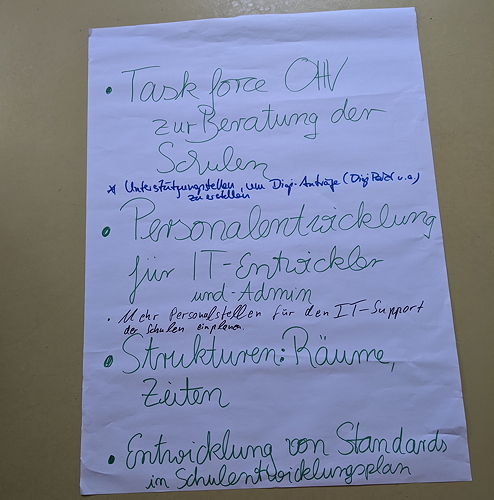 • Task force OHV
zur Beratung der
Schulen
* Unterstützungsstellen, um Digi-Anträge (DigiPakt u.a.)
zu erstellen
• Personalentwicklung
für IT-Entwickler
und -Admin
• Mehr Personalstellen für den IT-Support
der Schulen einplanen
• Strukturen: Räume,
Zeiten
• Entwicklung von Standards
im Schulentwicklungsplan